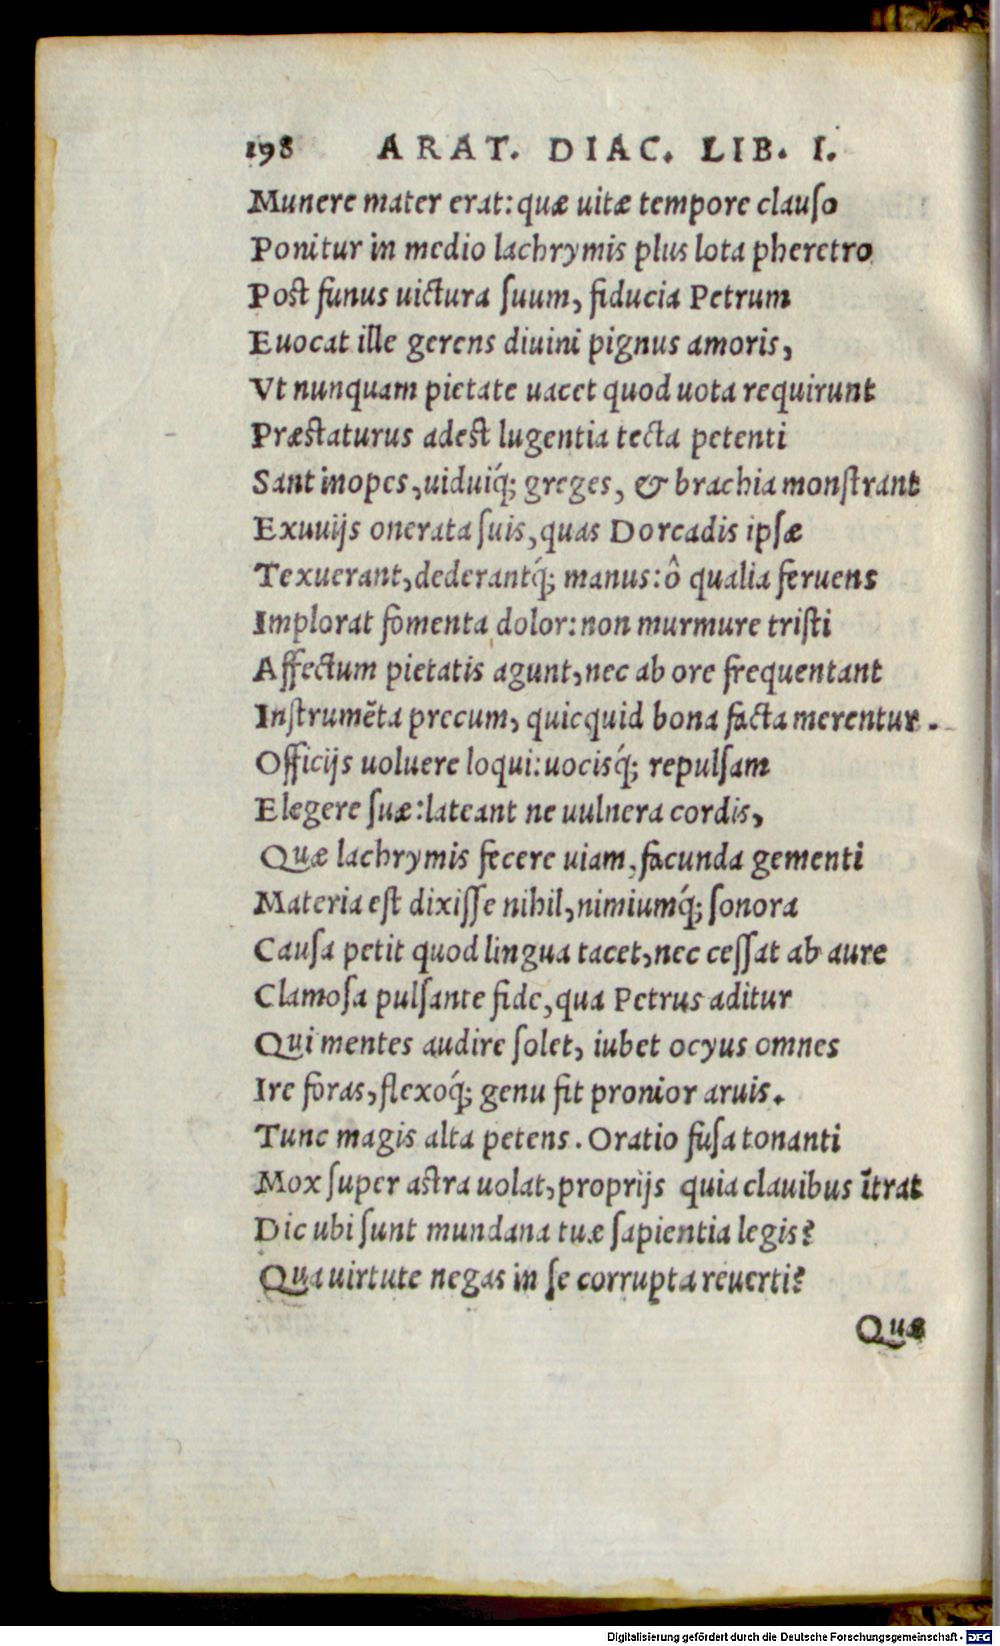 198 ARAT. DIAC. LIB. I.
Munere mater erat: quæ uitæ tempore clauſo
Ponitur in medio lachrymis plus lota pheretro
Poſt funus uictura ſuum, fiducia Petrum
Euocat ille gerens diuini pignus amoris,
Vt nunquam pietate uacet quod uota requirunt
Præſtaturus adeſt lugentia tecta petenti
Sant inopes, uiduiq́; greges, & brachia monſtrant
Exuuijs onerata ſuis, quas Dorcadis ipſæ
Texuerant, dederantq́; manus: ô qualia feruens
Implorat fomenta dolor: non murmure triſti
Affectum pietatis agunt, nec ab ore frequentant
Inſtrumēta precum, quicquid bona facta merentur.
Officijs uoluere loqui: uocisq́; repulſam
Elegere ſuæ: lateant ne uulnera cordis,
Quæ lachrymis fecere uiam, facunda gementi
Materia eſt dixiſſe nihil, nimiumq́; ſonora
Cauſa petit quod lingua tacet, nec ceſſat ab aure
Clamoſa pulſante fide, qua Petrus aditur
Qui mentes audire ſolet, iubet ocyus omnes
Ire foras, flexoq́; genu fit pronior aruis.
Tunc magis alta petens. Oratio fuſa tonanti
Mox ſuper aſtra uolat, proprijs quia clauibus ītrat
Dic ubi ſunt mundana tuæ ſapientia legis?
Qua uirtute negas in ſe corrupta reuerti?
Quæ
Digitalisierung gefördert durch die Deutsche Forschungsgemeinschaft - DFG